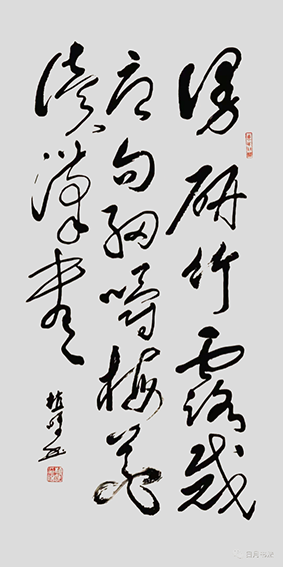 漫研竹露裁
唐句細嚼梅花
讀漢書